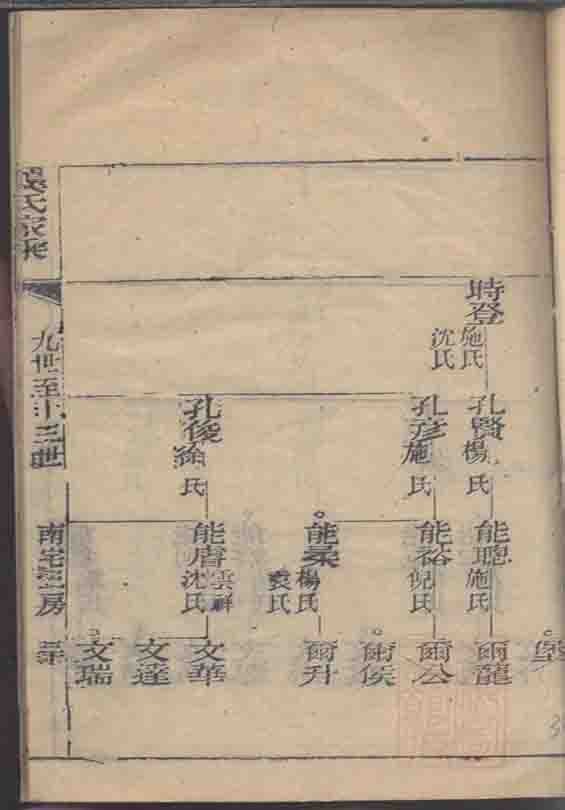 堡
時登
施氏
沈氏
孔賢
楊氏
孔彦
施氏
孔俊
徐氏
能聰
施氏
能裕
倪氏
能柔
楊氏
袁氏
能膚
雲祥
沈氏
爾龍
爾公
爾侯
爾升
文華
文達
文瑞
氏家乘
九世至十三世
南宅
房